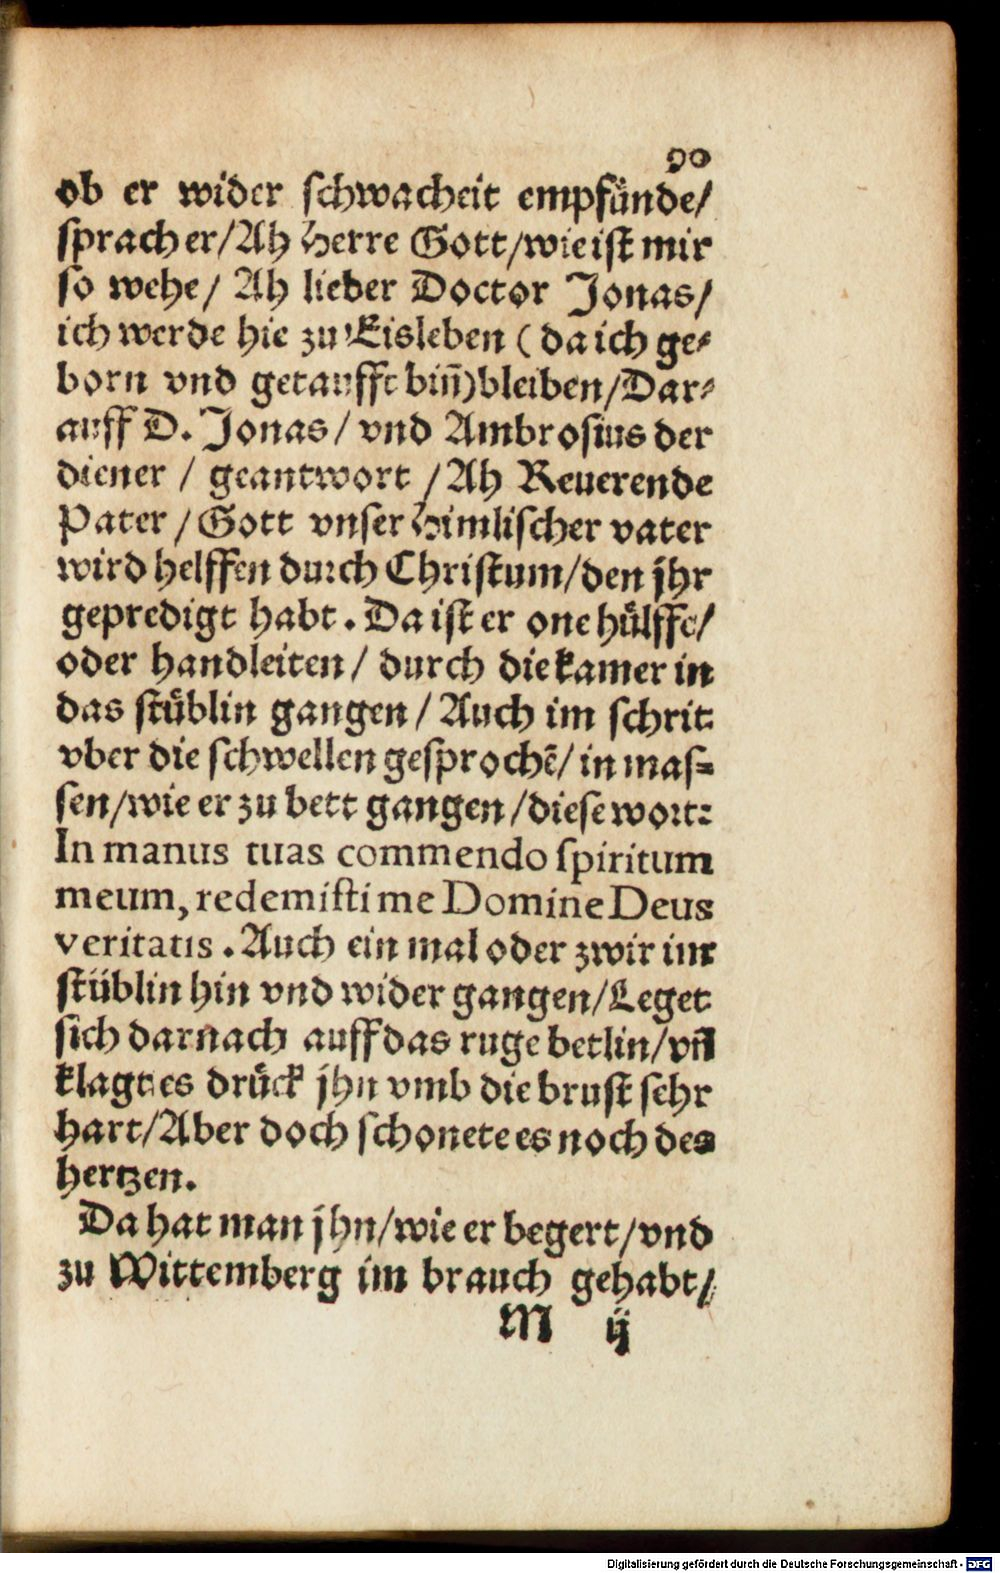 90
ob er wider schwacheit empfünde/
sprach er/Ah Herre Gott/wie ist mir
so wehe/ Ah lieber Doctor Jonas/
ich werde hie zu Eisleben (da ich ge⸗
born vnd getaufft biñ)bleiben/Dar⸗
auff D. Jonas/ vnd Ambrosius der
diener / geantwort /Ah Reuerende
Pater /Gott vnser Himlischer vater
wird helffen durch Christum/den jhr
gepredigt habt. Da ist er one hülffe/
oder handleiten/ durch die kamer in
das stüblin gangen/ Auch im schrit
vber die schwellen gesprochē/ in mas⸗
sen/wie er zu bett gangen/diese wort:
In manus tuas commendo spiritum
meum, redemisti me Domine Deus
veritatis. Auch ein mal oder zwir im
stüblin hin vnd wider gangen/Leget
sich darnach auff das ruge betlin/vñ
klagt es drück jhn vmb die brust sehr
hart/Aber doch schonete es noch des
hertzen.
Da hat man jhn/wie er begert/vnd
zu Wittemberg im brauch gehabt/
M ij
Digitalisierung gefördert durch die Deutsche Forschungsgemeinschaft - DFG